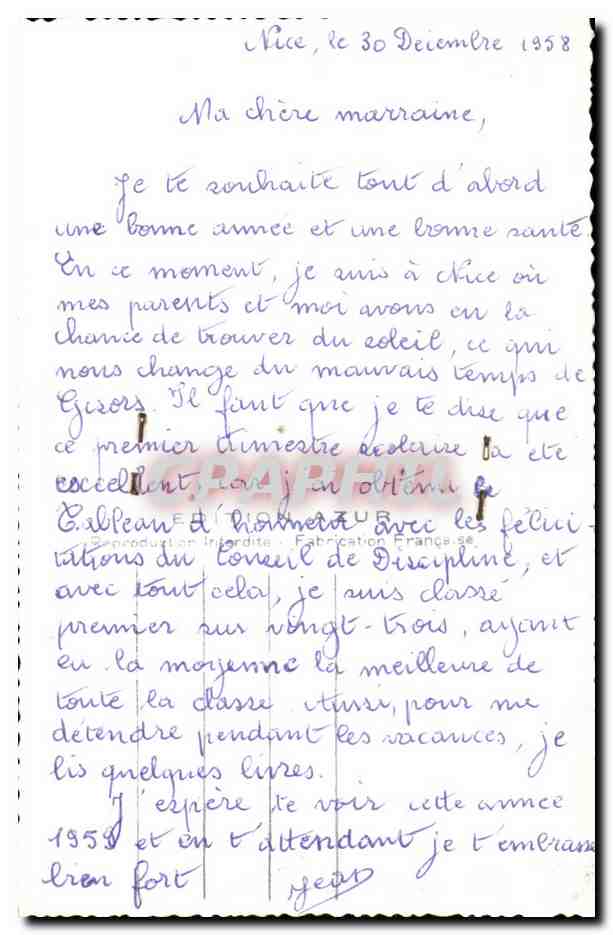 Nice, le 30 Décembre 1958
Ma chère marraine,
Je te souhaite tout d'abord
une bonne année et une bonne santé.
En ce moment, je suis à Nice où
mes parents et moi avons eu la
chance de trouver du soleil, ce qui
nous change du mauvais temps de
Gisors. Il faut que je te dise que
ce premier trimestre scolaire a été
excellent, car j'ai obtenu le
EDITION AZUR
Tableau d'honneur avec les félici-
Reproduction Interdite - Fabrication Française
tations du Conseil de Discipline, et
avec tout cela, je suis classé
premier sur vingt-trois, ayant
eu la moyenne la meilleure de
toute la classe. Aussi, pour me
détendre pendant les vacances, je
lis quelques livres.
J'espère te voir cette année
1959 et en t'attendant je t'embrasse
bien fort Jean